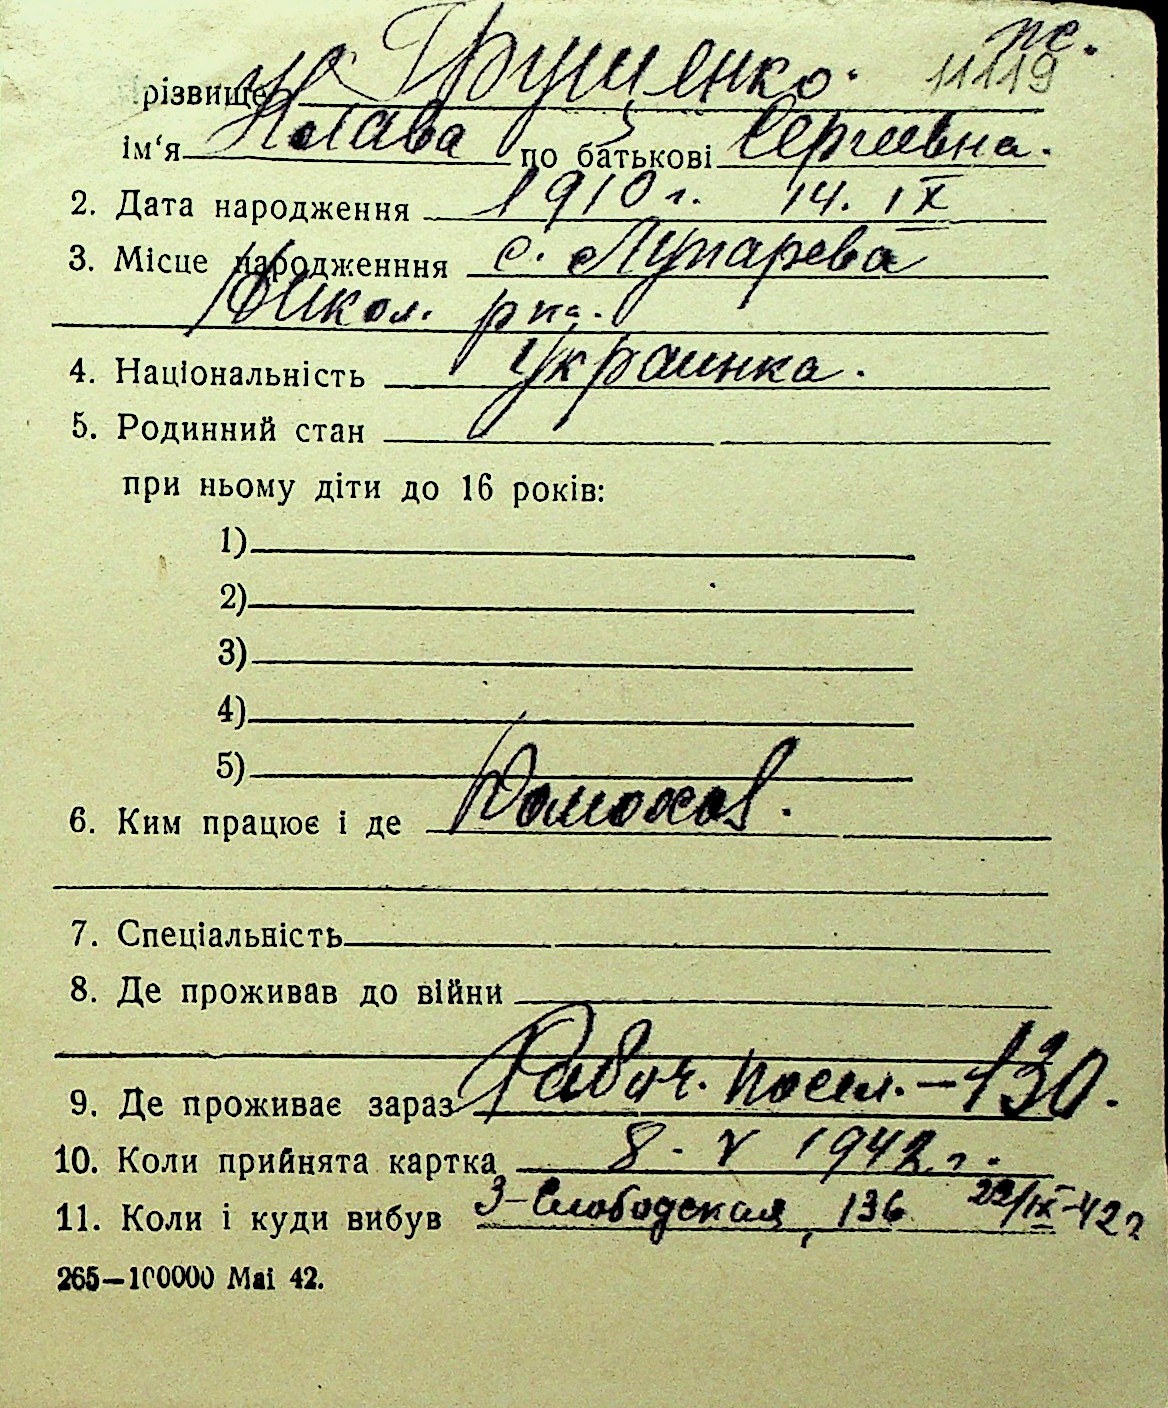 пс.
11119
різвище Грущенко.
ім'я Клава по батькові Сергеевна.
2. Дата народження 1910 г. 14. IX
3. Місце народженння с. Лупарева
Никол. рна.
4. Національність Украинка.
5. Родинний стан
при ньому діти до 16 років:
1)
2)
3)
4)
5)
6. Ким працює і де Домохоз.
7. Спеціальність
8. Де проживав до війни
9. Де проживає зараз Рабоч. посел. – 130.
10. Коли прийнята картка 8. V 1942 г.
11. Коли і куди вибув 3-Слободская, 136 22/IX-42 г
265—100000 Mai 42.